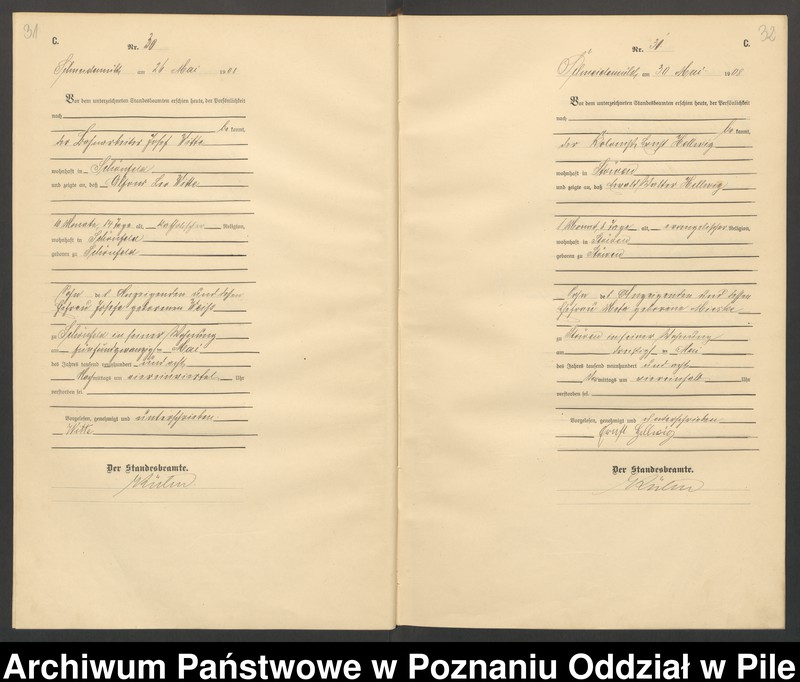 31
C.
Nr. 30
Schneidemühl, am 26 Mai 1908
Vor dem unterzeichneten Standesbeamten erschien heute, der Persönlichkeit
nach
be kannt,
der Bahnarbeiter Josef Witte
wohnhaft in Schönfeld
und zeigte an, daß Alfons Leo Witte
Monate, 14 Tage alt, katholischer Religion,
wohnhaft in Schönfeld
geboren zu Schönfeld
Sohn des Anzeigenden und dessen
Ehefrau geborenen
zu Schönfeld in seiner Wohnung
am fünfundzwanzigsten Mai
des Jahres tausend neunhundert und acht
Nachmittags um viereinviertel Uhr
verstorben sei.
Vorgelesen, genehmigt und unterschrieben
Witte
Der Standesbeamte.
32
C.
Nr. 31
Schneidemühl, am 30 Mai 1908
Vor dem unterzeichneten Standesbeamten erschien heute, der Persönlichkeit
nach
be kannt,
der Ernst Hellwig
wohnhaft in Stöwen
und zeigte an, daß Ewald Walter Hellwig
Monat, 8 Tage alt, evangelischer Religion,
wohnhaft in Stöwen
geboren zu Stöwen
Sohn des Anzeigenden und dessen
Ehefrau geborene
zu Stöwen in seiner Wohnung
am Mai
des Jahres tausend neunhundert und acht
mittags um viereinhalb Uhr
verstorben sei.
Vorgelesen, genehmigt und unterschrieben
Ernst Hellwig
Der Standesbeamte.
Archiwum Państwowe w Poznaniu Oddział w Pile